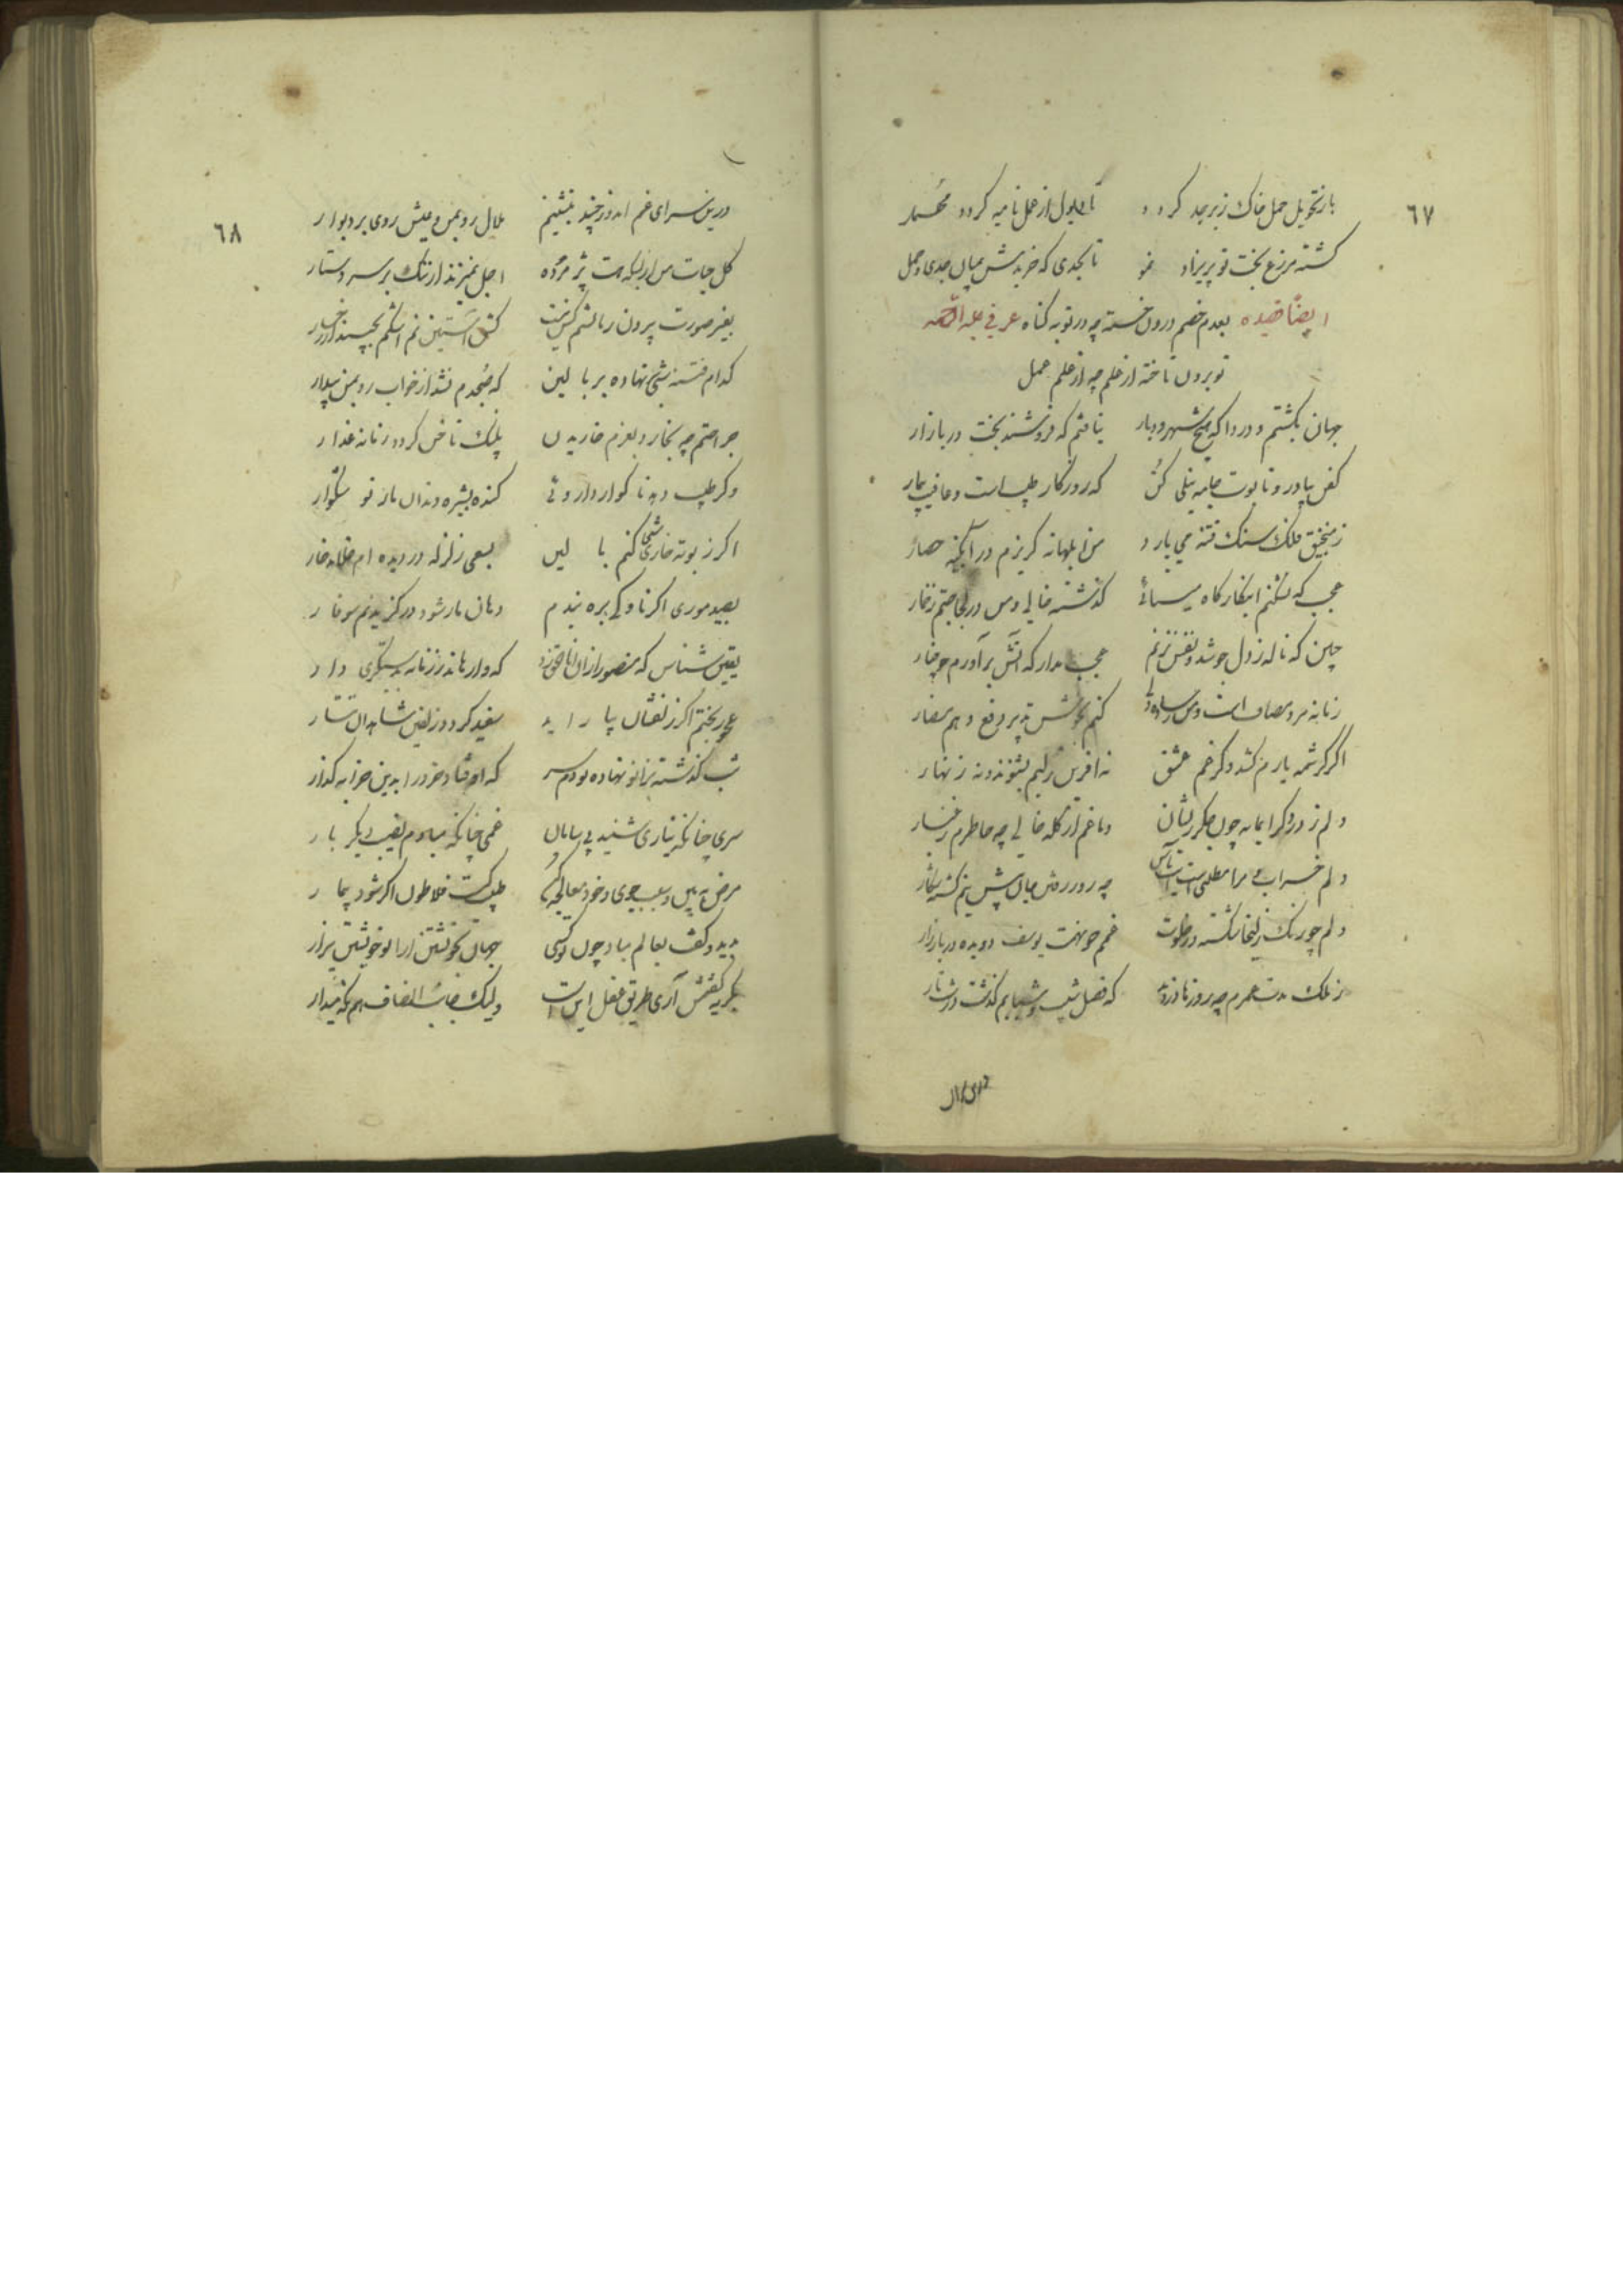 ٦٧
باز تحویل حمل خاک زبرجد کردد تا حلول از عمل نامیه کردد مهمل
کشته مزرع بخت تو پریزاد نمو تا بجدی که خرید میان جدی و حمل
ایضاً قصیده بعدم خصم درون خسته چه در توبه کناه عرفی علیه الرحمه
تو برون تاخته از علم چه از علم عمل
جهان بکشتم و دردا که هیچ شهر و دیار نیافتم که فروشند بخت در بازار
کفن بیاور و تابوت و جامه نیلی کن که روزکار طبیب است و عافیت بیمار
ز منجنیق فلک سنک فتنه می بارد من ابلهانه کریزم در آبکینه حصار
عجب که نشکنم این کارکاه مینائی که شیشه خالی و من در لجاجتم ز خمار
چنین که ناله ز دل جوشد و نفس نزنم عجب مدار که آتش برآورم چو چنار
زمانه مرد مصاف است و من ز ساده دلی کنم بجوشن تدبیر و وهم دفع مضار
اگر کرشمه یارم کشد و کر غم عشق نه آفرین ز لبم بشنوند و نه زنهار
دلم ز درد کرانمایه چون جکر ز فغان دماغم از کله خالی چه خاطرم ز غبار
دلم خراب مرا مطلبی است چه روز رفته
دلم چو رنک زلیخا شکسته در خلوت غمم چو تهمت یوسف دویده در بازار
ز ملک مدت عمرم چه روز نادزدید که فصل شیب و شبابم کذشت در شب تار
٦٨
درین سرای غم اندوز چند بنشینم ملال رو بمن و عیش روی بر دیوار
کل حیات من از بسکه هست پژمرده اجل نمیزند از ننک بر سر دستار
بغیر صورت بیرون ز بالشم کس نیست کش آستین نم اشکم بچیند از رخسار
کدام فتنه شبی سر نهاده بر بالین که صبحدم نشد از خواب رو بمن بیدار
جراحتم چه بخارد بعزم خاریدن پلنک ناخن کردد زمانه غدار
وکر طبیب دهد ناکوار داروئی کنده بشیره دندان مار نوشکوار
اکر ز بوته خاری شبی کنم بالین بسعی زلزله در دیده ام خلاند خار
بصید موری اکر ناوکی بزه بندم دهان مار شود در کزیدنم سوفار
یقین شناس که منصور از ان انا الحق زد که وارهاند ز زمانه بدستکیری دار
عجوز بختم اکر زلفشان بیاراید سفید کردد زلفین شاهدان تتار
شب کذشته بزانو نهاده بودم سر که اوفتاد خرد را بدین خرابه کذار
سری چنانکه نیاری شنید بی سامان غمی چنانکه مبادم نصیب دیکر بار
مرض نه بین و سبب جوی و خود معالجه کن طبیب کیست فلاطون اکر شود بیمار
بدید و کفت بعالم مباد چون تو کسی جهان بخویشتن ارا تو خویشتن بیزار
بکریه کفتمش آری طریق عقل این است ولیک جانب انصاف هم نکه میدار